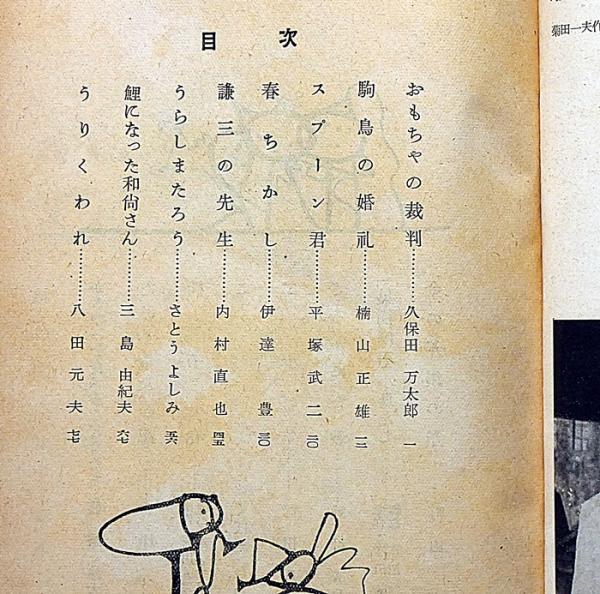 目次
おもちゃの裁判………久保田万太郎 一
駒鳥の婚礼………楠山正雄 三
スプーン君………平塚武二 二〇
春ちかし………伊達豊 三〇
謙三の先生………内村直也
うらしまたろう………さとうよしみ
鯉になった和尚さん………三島由紀夫
うりくわれ………八田元夫
菊田一夫作